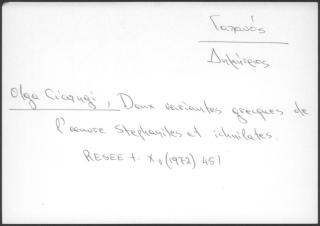 Γαλανός
Δημήτριος
Olga Cicanci, Deux variantes grecques de
l'œuvre Stephanites et ichnilates.
RESEE t. X, (1972) 451